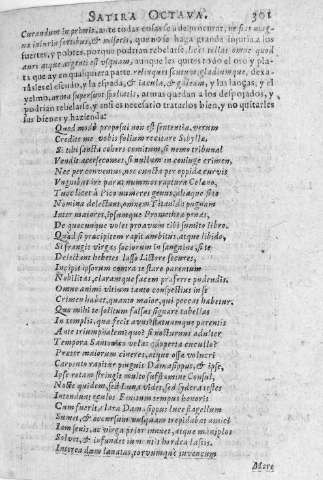 SATIRA OCTAVA. 301
Curandum in primis, ante todas cosas se à de procurar, ne fiat mag-
na iniuria fortibus, & miseris, que no se haga grande injuria a los
fuertes, y pobres, porque podrian rebelarse. licet tollas omne quod
auri atque argenti est vsquam, aunque les quites todo el oro y pla-
ta que ay en qualquiera parte. relinques scutum, gladiumque, dexa-
ràsles el escudo, y la espada, & iacula, & galeam, y las lanças, y el
yelmo. arma supersunt spoliatis, armas quedan a los despojados, y
podrian rebelarse, y assi es necesario tratarlos bien, y no quitarles
las bienes y hazienda:
Quod modò proposui non est sententia, verum
Credite me vobis folium recitare Sibyllæ.
Si tibi sancta cohors comitum, si nemo tribunal
Vendit acersecomes, si nullum in coniuge crimen,
Nec per conventus, nec cuncta per oppida curuis
Vnguibus ire parat nummos raptura Celæno,
Tunc licet à Pico numeres genus, altaque si te
Nomina delectant, omnem Titanida pugnam
Inter maiores, ipsumque Promethea ponas,
De quocunque voles proauum tibi sumito libro.
Quòd si præcipitem rapit ambitus, atque libido,
Si frangis virgas sociorum in sanguine, si te
Delectant hebetes lasso Lictore secures,
Incipit ipsorum contra te stare parentum
Nobilitas, claramque facem præferre pudendis.
Omne animi vitium tanto conspectius in se
Crimen habet, quanto maior, qui peccat habetur.
Quo mihi te solitum falsas signare tabellas
In templis, quæ fecit auus? statuamque parentis
Ante triumphalem? quo? si nocturnus adulter
Tempora Santonico velas adoperta cucullo?
Præter maiorum cineres, atque ossa volucri
Carpento rapitur pinguis Damasippus, & ipse,
Ipse rotam stringit multo sufflamine Consul,
Nocte quidem, sed Luna videt, sed sydera testes
Intendunt oculos. Finitum tempus honoris
Cum fuerit, clara Damasippus luce flagellum
Sumet, & occursum nusquam trepidabit amici
Iam senis, ac virga prior innuet, atque maniplos
Soluet, & infundet iumentis hordea lassis.
Interea dum lanatas, torvumque iuvencum
More